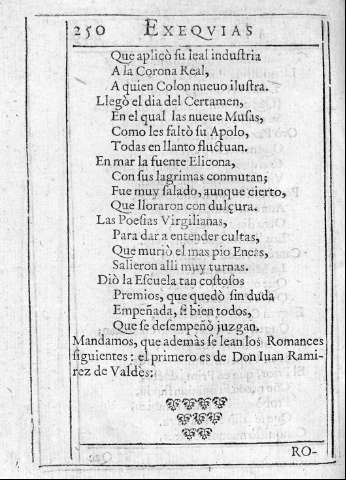 250 EXEQVIAS
Que aplicò ſu leal induſtria
A la Corona Real,
A quien Colon nueuo iluſtra.
Llegò el dia del Certamen,
En el qual las nueue Muſas,
Como les faltò ſu Apolo,
Todas en llanto fluctuan.
En mar la fuente Elicona,
Con sus lagrimas conmutan;
Fue muy ſalado, aunque cierto,
Que lloraron con dulçura.
Las Poeſias Virgilianas,
Para dar a entender cultas,
Que muriò el mas pio Eneas,
Salieron alli muy turnas.
Diò la Eſcuela tan coſtoſos
Premios, que quedò ſin duda
Empeñada, ſi bien todos,
Que ſe deſempeñò juzgan.
Mandamos, que demàs ſe lean los Romances
ſiguientes: el primero es de Don Iuan Rami-
rez de Valdès:
RO-